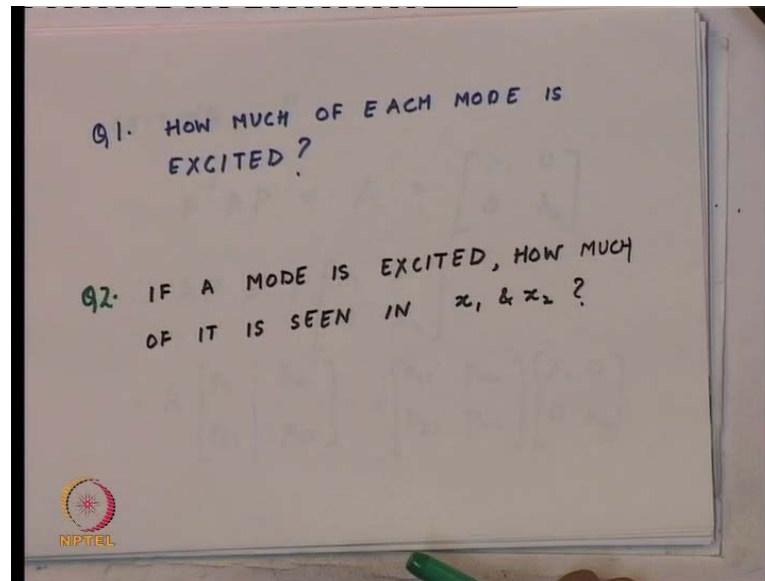 Q1. HOW MUCH OF EACH MODE IS
EXCITED?
Q2. IF A MODE IS EXCITED, HOW MUCH
OF IT IS SEEN IN x₁ & x₂ ?
NPTEL